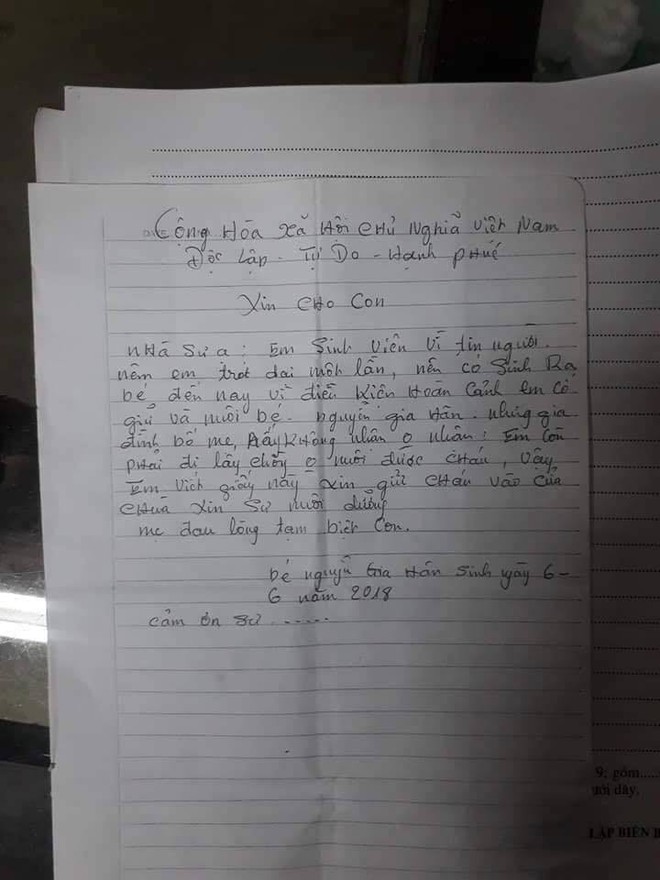 Cộng Hòa Xã Hôi Chủ Nghiã Việt Nam
Độc Lập - Tự Do - Hạnh Phúc
Xin Cho Con
Nhà Sư ạ: Em Sinh Viên Vì tin người.
nêm em trót dại một lần, nên có Sinh Ra
bé đến nay vì điều Kiên Hoàn Cảnh em có
giử và nuôi bé. nguyễn gia Hân. nhưng gia
đình bố mẹ, Không nhân o nhân: Em Còn
phải đi lấy chồng o nuôi được Cháu, Vậy
Em Viết giấy này Xin gửi Cháu Vào Cửa
Chùa Xin Sư nuôi dưỡng
mẹ đau lòng tạm biệt Con.
bé nguyễn Gia Hân Sinh ngày 6-
6 năm 2018
Cảm ơn Sư ......
9; gồm.....
ưới đây.
LẬP BIÊN B